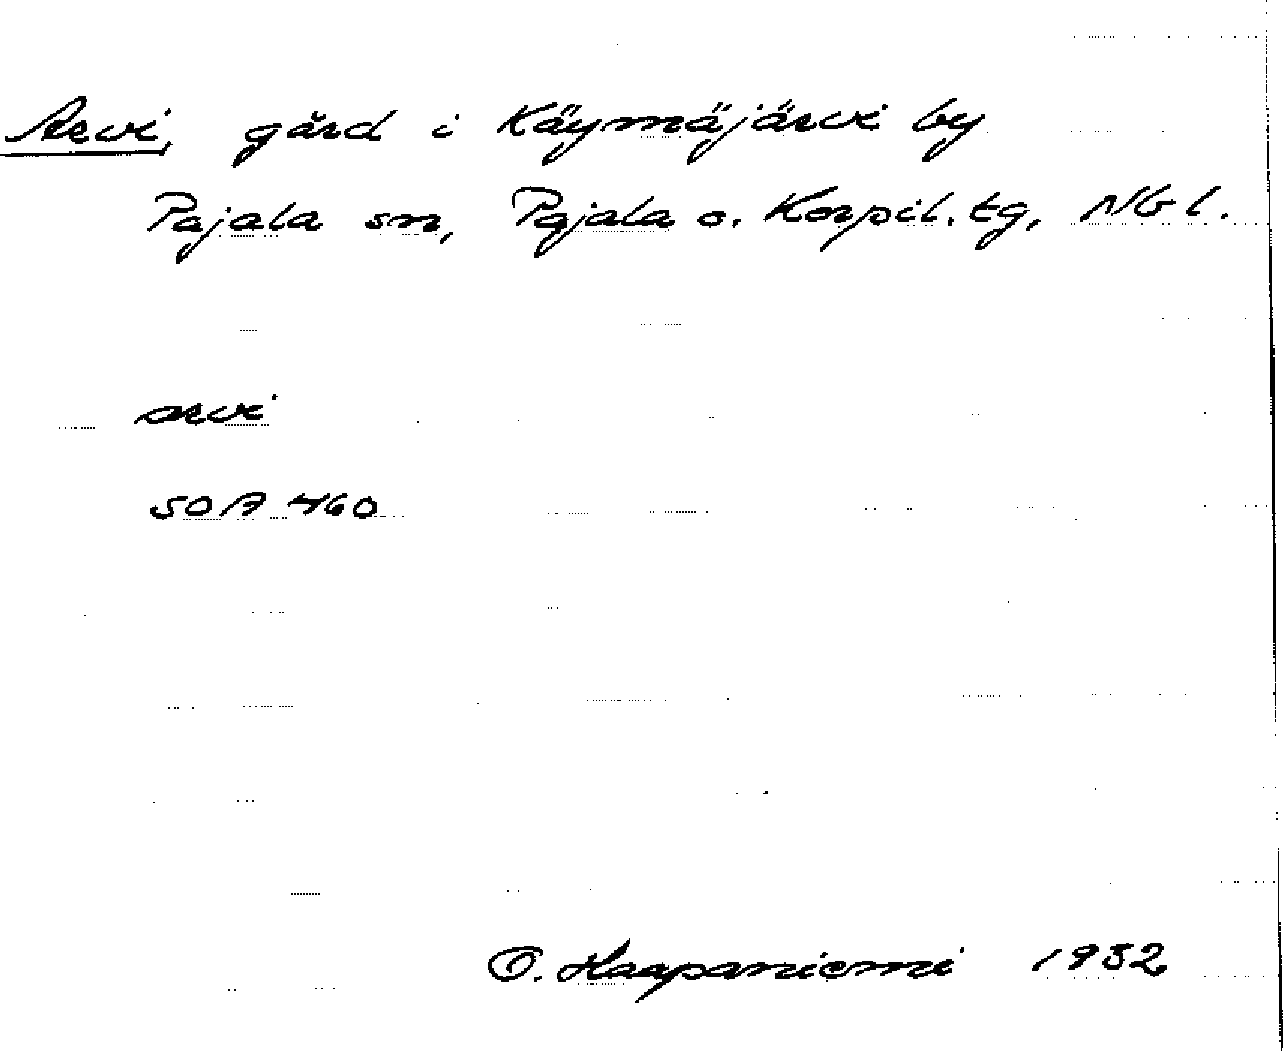 Arvi, gård i Käymäjärvi by
Pajala sn, Pajala o. Korpil. tg, Nb l.
arvi
SOA 460
O. Haapaniemi 1932